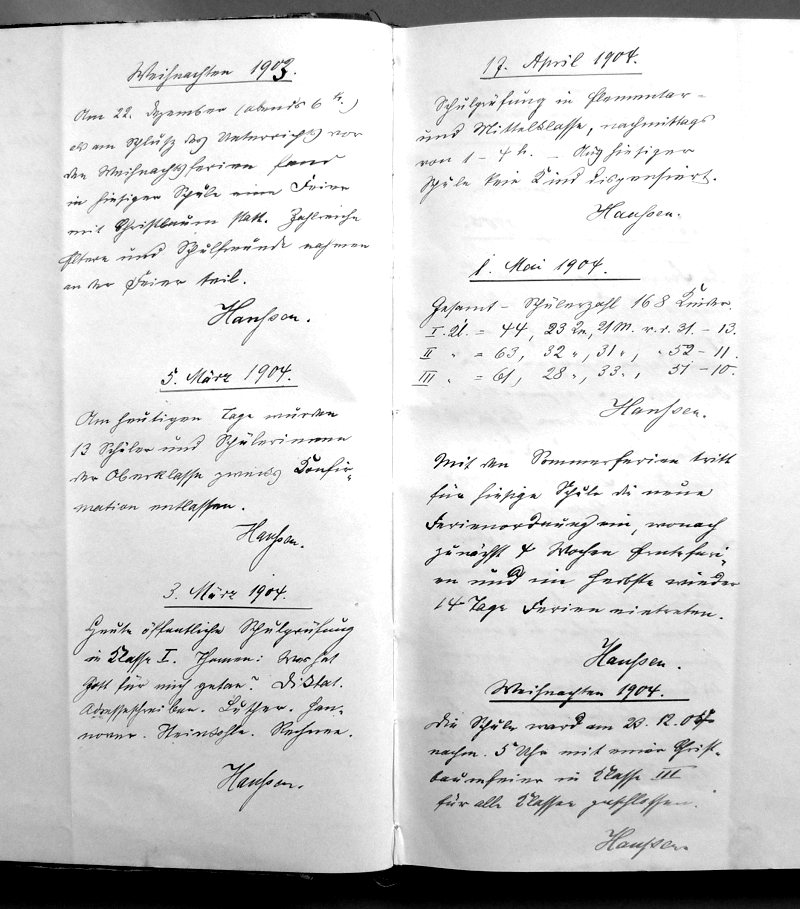 Weihnachten 1903.
Am 22. Dezember (abends 6 h.)
als am Schluß des Unterrichts vor
den Weihnachtsferien fand
in hiesiger Schule eine Feier
mit Christbaum statt. Zahlreiche
Eltern und Schulfreunde nahmen
an der Feier teil.
Hanssen.
5. März 1904.
Am heutigen Tage wurden
13 Schüler und Schülerinnen
der Oberklasse zwecks Konfir-
mation entlassen.
Hanssen.
3. März 1904.
Heute öffentliche Schulprüfung
in Klasse I. Themen: Was hat
Gott für mich getan? Diktat.
Adresseschreiben. Luther. Han-
nover. Steinkohle. Rechnen.
Hanssen.
17. April 1904.
Schulprüfung in Elementar-
und Mittelklasse, nachmittags
von 1 - 4 h. - Aus hiesiger
Schule kein Kind dispensiert.
Hanssen.
1. Mai 1904.
Gesamt-Schülerzahl 168 Kinder.
I. Kl. = 44, 23 Kn., 21 M. v. d. 31. - 13.
II " = 63, 32 ", 31 ", " 52 - 11.
III " = 61, 28 ", 33 ", 51 - 10.
Hanssen.
Mit den Sommerferien tritt
für hiesige Schule die neue
Ferienordnung ein, wonach
zunächst 4 Wochen Ernteferi-
en und im Herbste wieder
14 Tage Ferien eintreten.
Hanssen.
Weihnachten 1904.
Die Schule ward am 23. 12. 04
nachm. 5 Uhr mit einer Christ-
baumfeier in Klasse III
für alle Klassen geschlossen.
Hanssen.